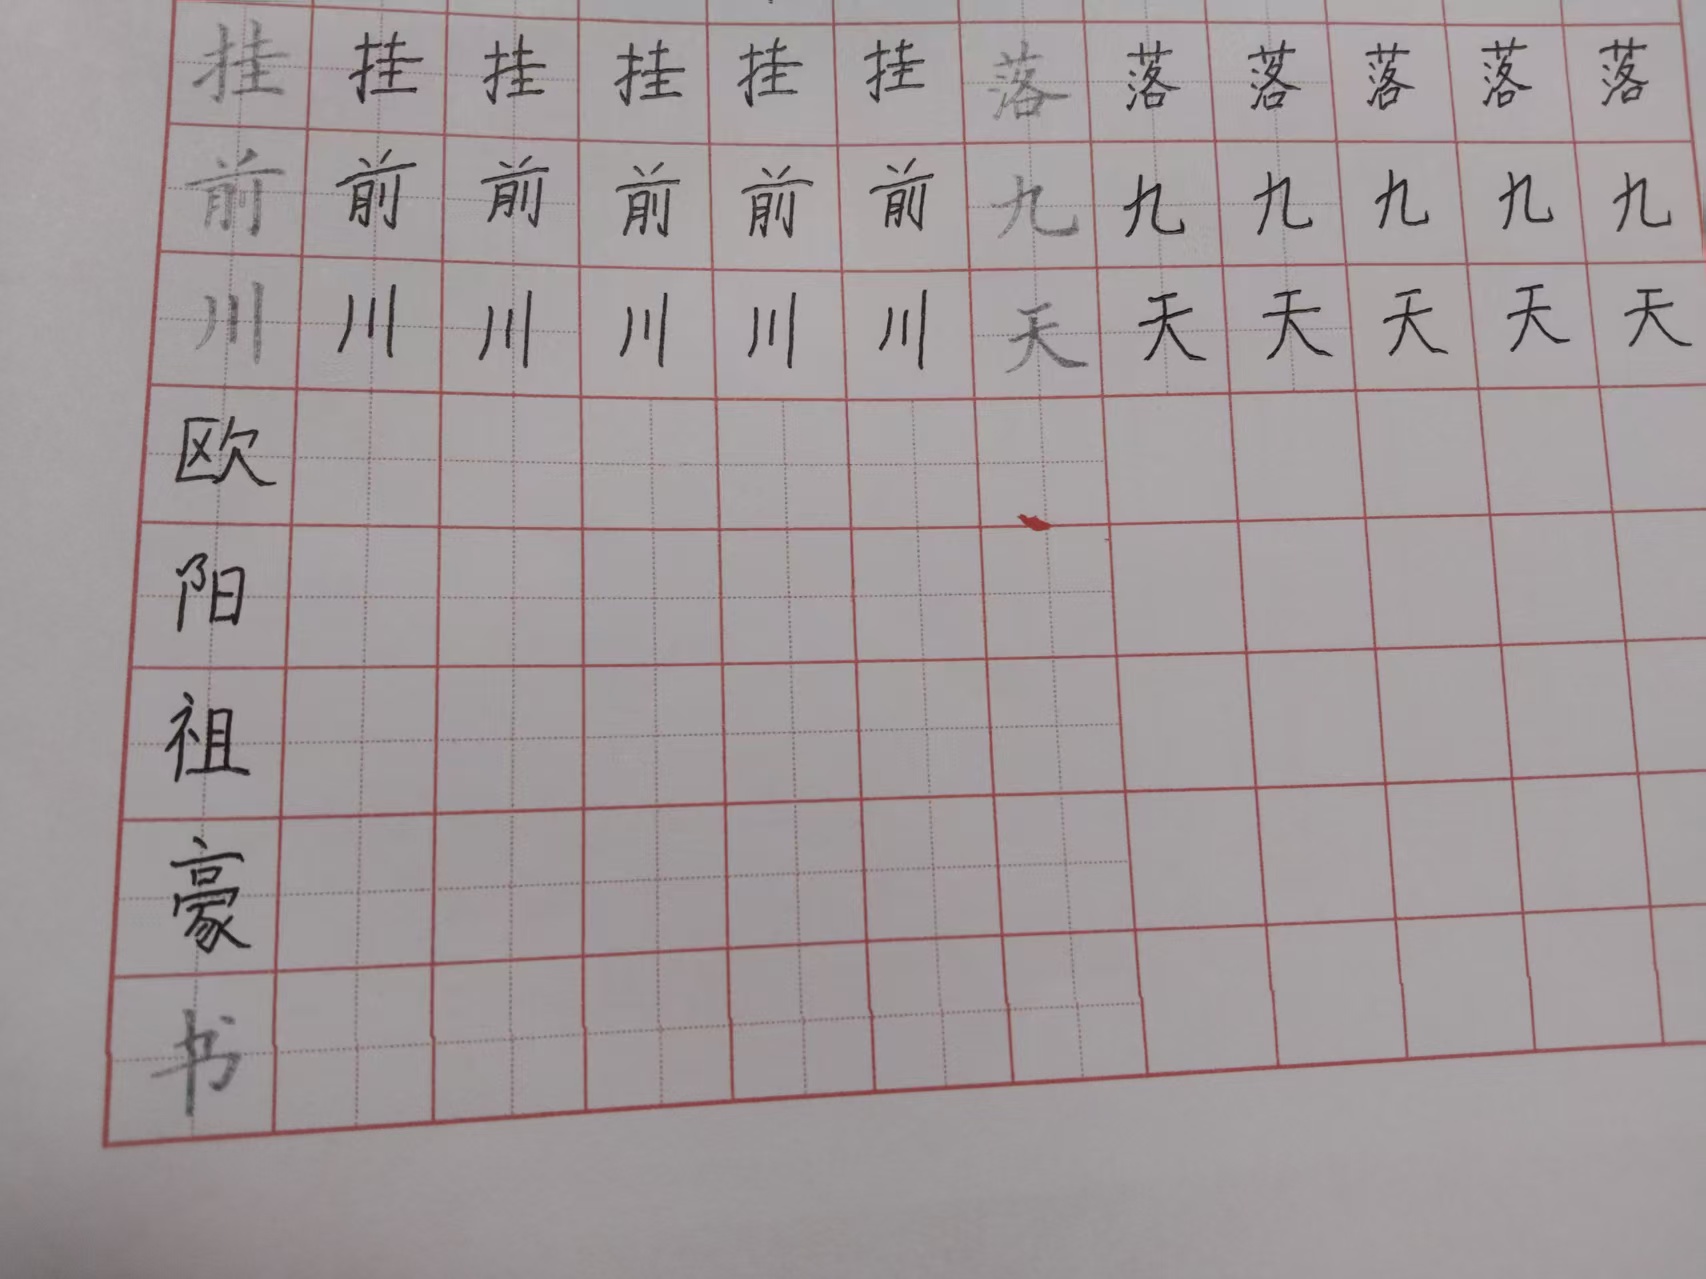 挂挂挂挂挂挂落落落落落落
前前前前前前九九九九九九
川川川川川川天天天天天天
欧
阳
祖
豪
书